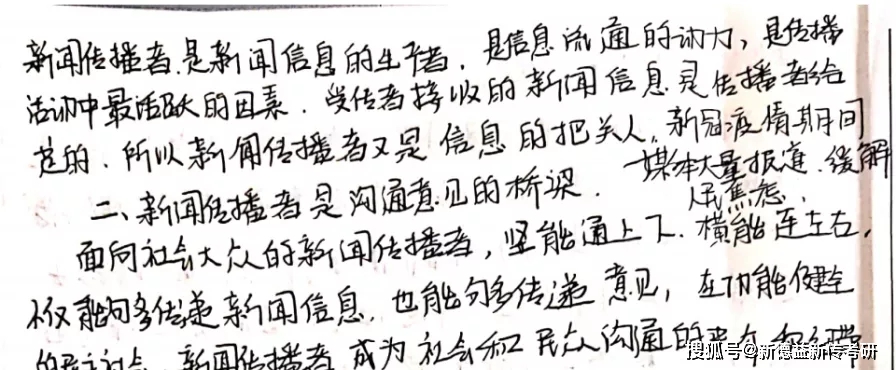 新闻传播者是新闻信息的生产者，是信息流通的动力，是传播
活动中最活跃的因素．受传者接收的新闻信息是传播者给
范的．所以新闻传播者又是信息的把关人。新冠疫情期间
媒体大量报道．缓解
人民焦虑．
二、新闻传播者是沟通意见的桥梁．
面向社会大众的新闻传播者，坚能通上下．横能连左右，
不仅能够传递新闻信息．也能够传递意见，在功能健全
的民主社会．新闻传播者成为社会和民众沟通的
搜狐号@新德益新传考研